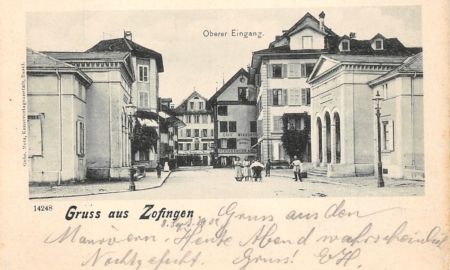 Oberer Eingang.
Gebr. Metz, Kunstverlagsanstalt, Basel.
14248
Gruss aus Zofingen
Gruss aus den
Manövern. Heute Abend wahrscheinlich
Nachtgefecht. Gruss!